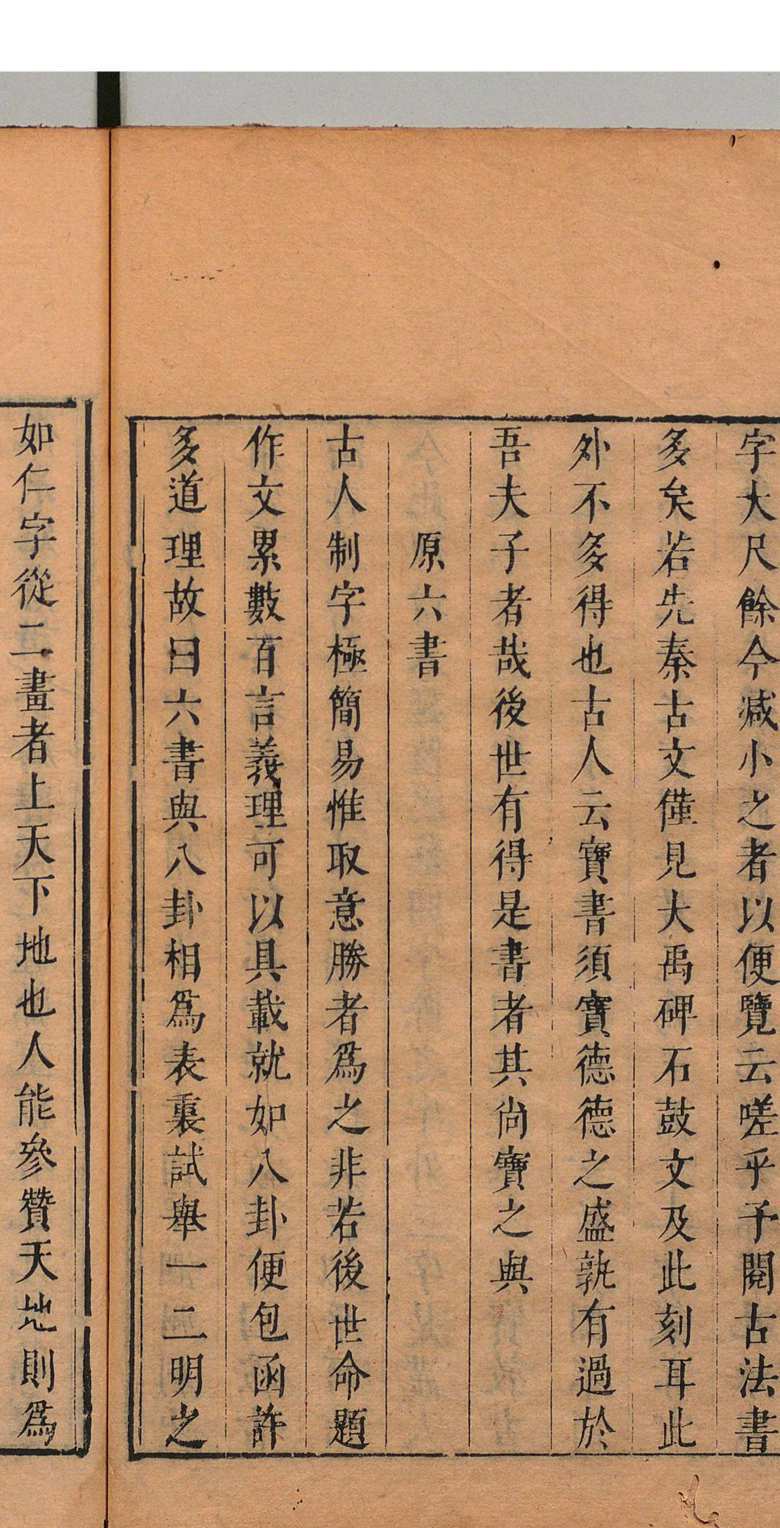 字大尺餘今減小之者以便覽云嗟乎予閱古法書
多矣若先秦古文僅見大禹碑石鼓文及此刻耳此
外不多得也古人云寶書須寶德德之盛孰有過於
吾夫子者哉後世有得是書者其尚寶之與
原六書
古人制字極簡易惟取意勝者爲之非若後世命題
作文累數百言義理可以具載就如八卦便包函許
多道理故曰六書與八卦相爲表裏試舉一二明之
如仁字從二畫者上天下地也人能參贊天地則爲